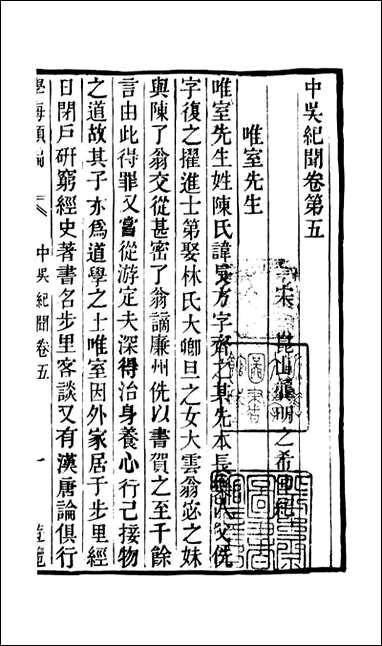 中吳紀聞卷第五
宋 崑山龔明之希仲紀
唯室先生
唯室先生姓陳氏諱長方字齊之其先本長樂人父侁
字復之擢進士第娶林氏大卿旦之女大雲翁宓之妹
與陳了翁交從甚密了翁謫廉州侁以書賀之至千餘
言由此得罪又嘗從游定夫深得治身養心行己接物
之道故其子亦爲道學之士唯室因外家居于步里經
日閉戶研窮經史著書名步里客談又有漢唐論俱行
學海類編
中吳紀聞卷五
一